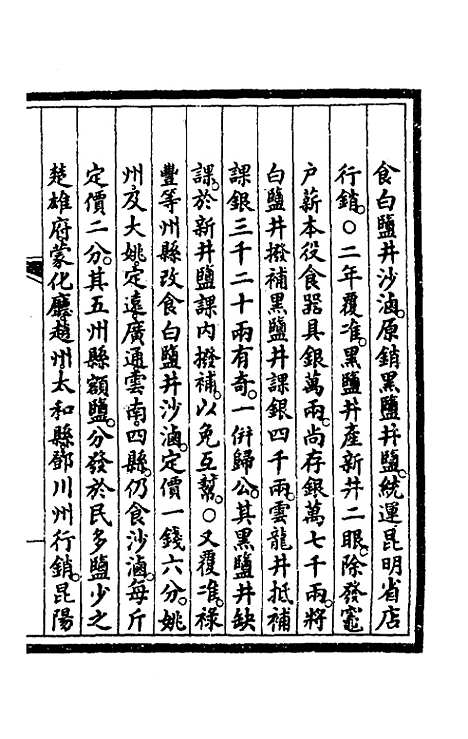 食白鹽井沙滷。原銷黑鹽井鹽。統運昆明省店
行銷。○二年覆准。黑鹽井產新井二眼。除發竈
戶薪本役食器具銀萬兩。尚存銀萬七千兩。將
白鹽井撥補黑鹽井課銀四千兩。雲龍井抵補
課銀三千二十兩有奇。一併歸公。其黑鹽井缺
課。於新井鹽課內撥補。以免互幫。○又覆准。祿
豐等州縣改食白鹽井沙滷。定價一錢六分。姚
州及大姚定遠廣通雲南四縣。仍食沙滷。每斤
定價二分。其五州縣額鹽。分發於民多鹽少之
楚雄府蒙化廳趙州太和縣鄧川州行銷。昆陽